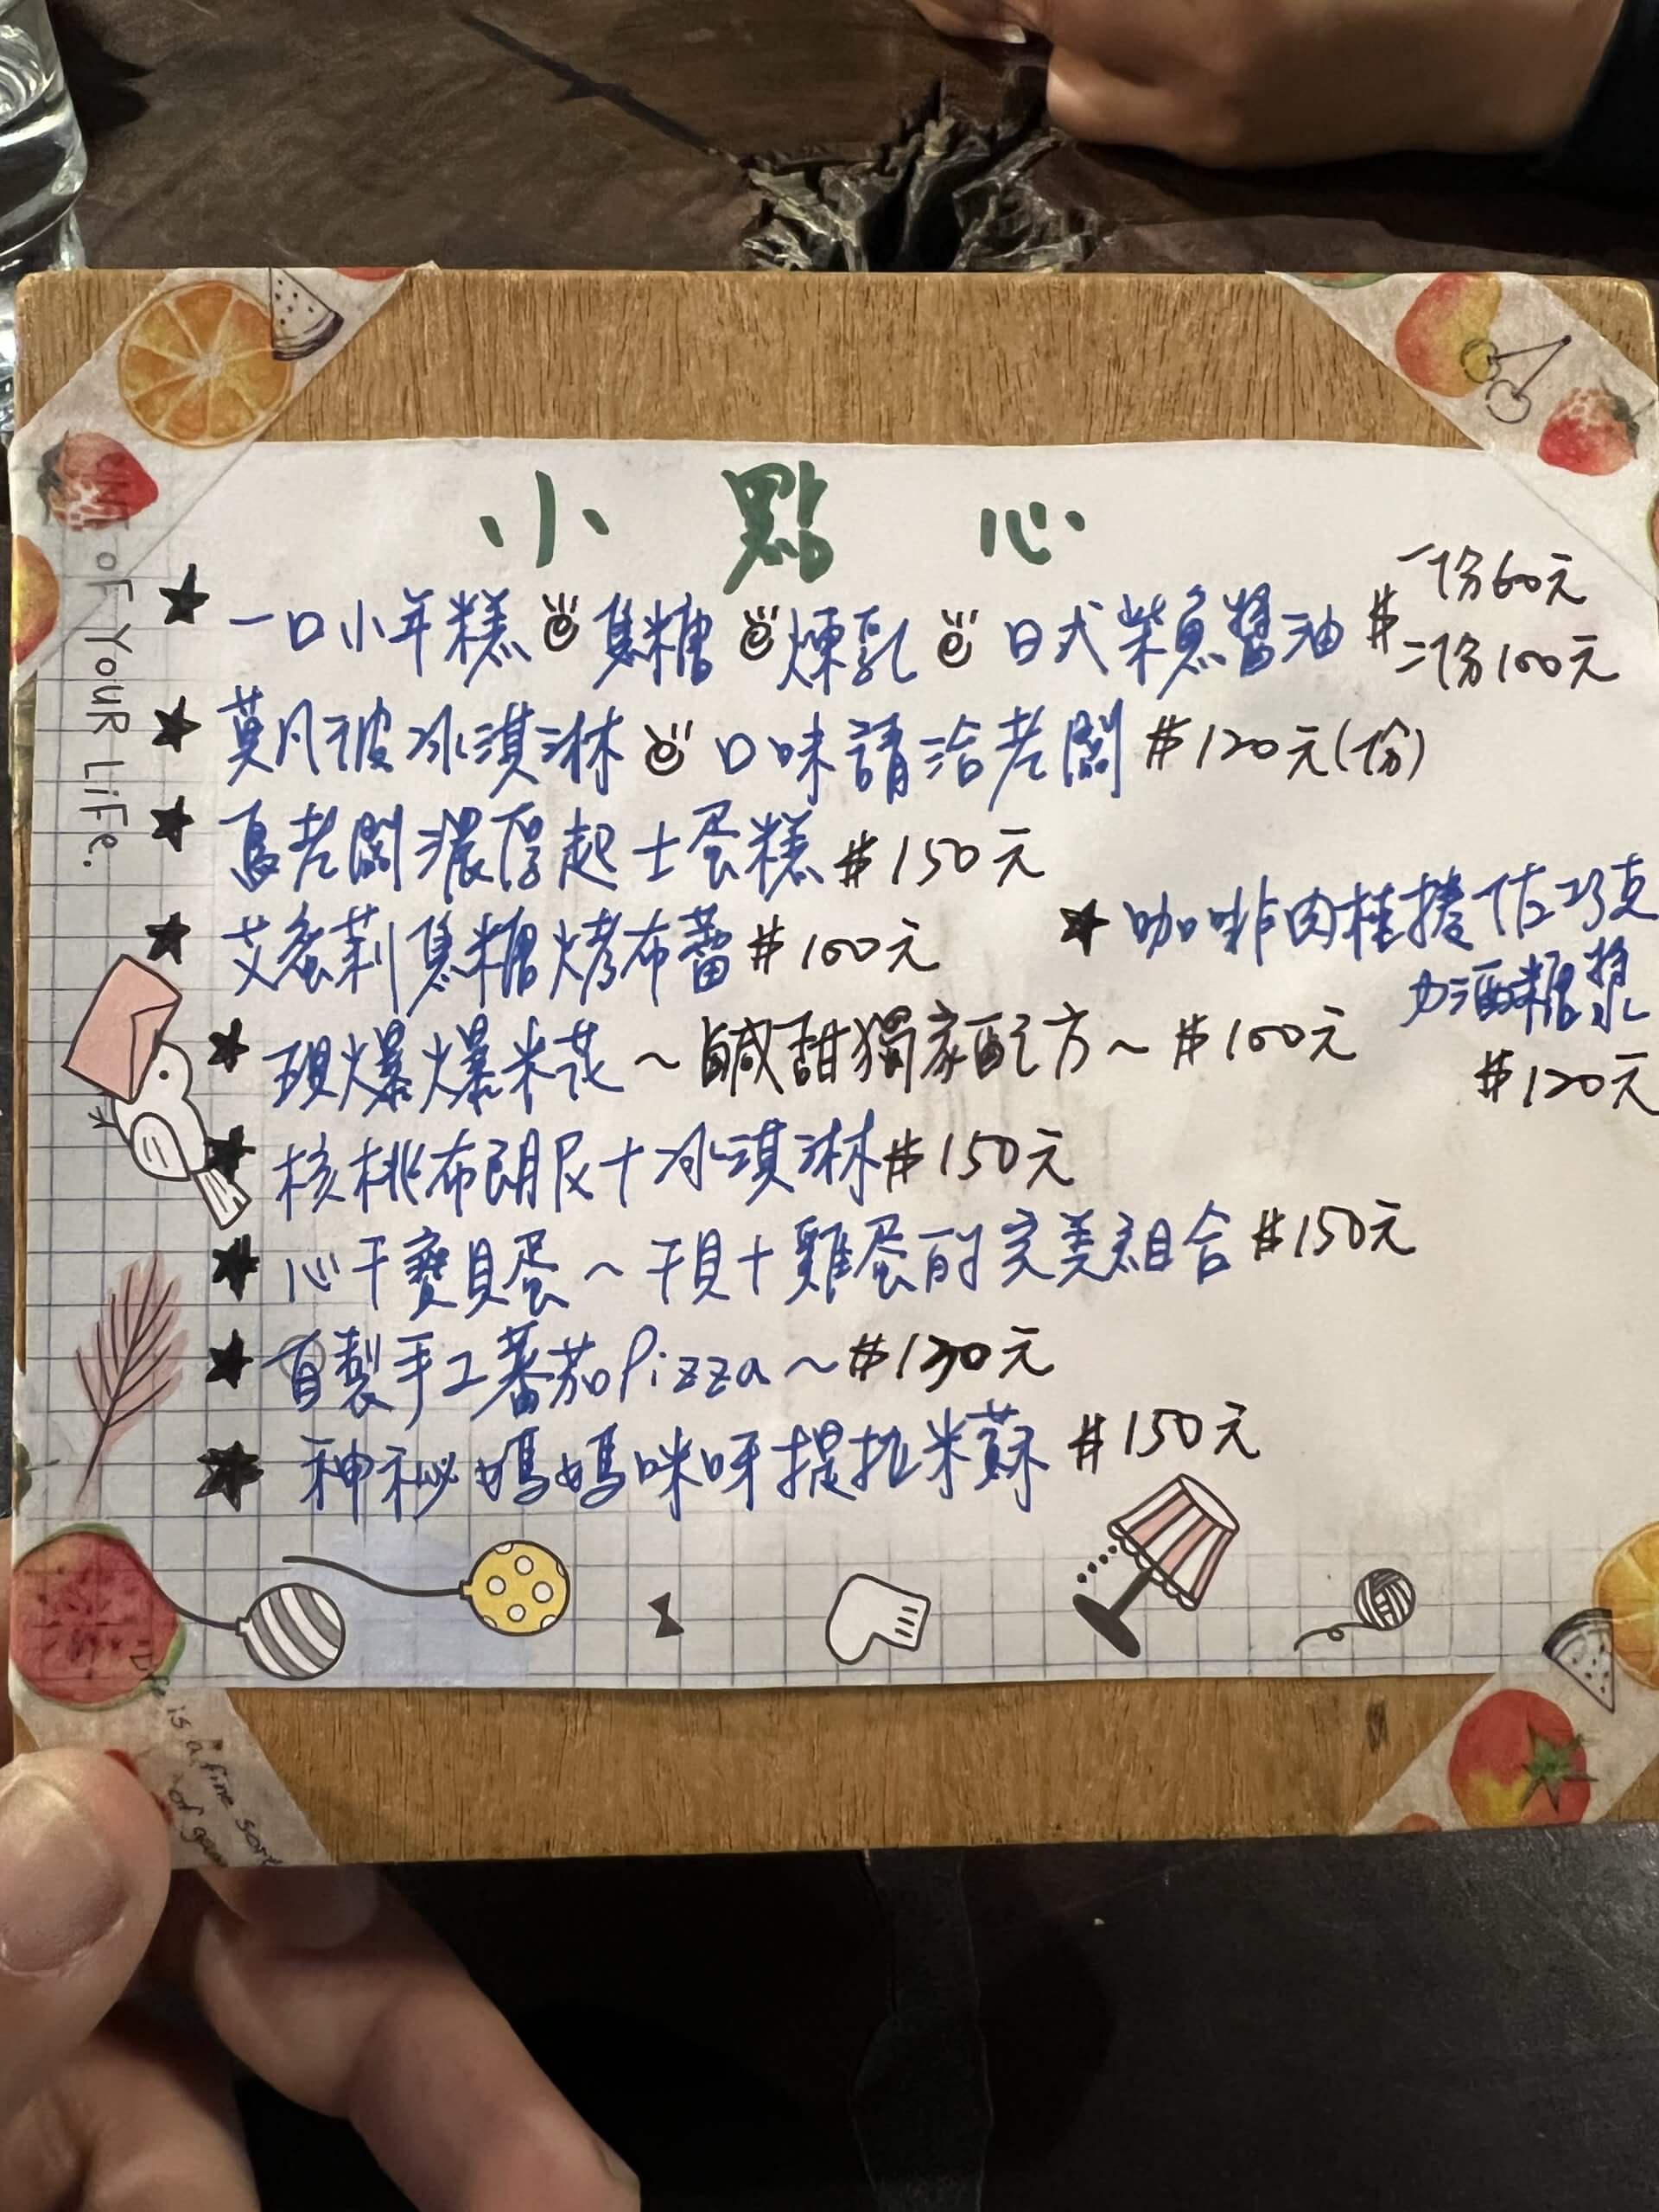 小點心
★一口小年糕 焦糖 煉乳 日式柴魚醬油 #一份60元
二份100元
★莫凡彼冰淇淋 口味請洽老闆 #120元(份)
★島老闆濃厚起士蛋糕 #150元
★艾蜜莉焦糖烤布蕾 #100元
★咖啡肉桂捲佐巧克
力酒糖漿
#120元
★現爆爆米花~鹹甜獨家配方~ #100元
★核桃布朗尼+冰淇淋 #150元
★心干寶貝蛋~干貝+雞蛋的完美組合 #150元
★自製手工蕃茄Pizza~ #130元
★神秘媽媽咪呀提拉米蘇 #150元
of YouR LiFe.
is a fine